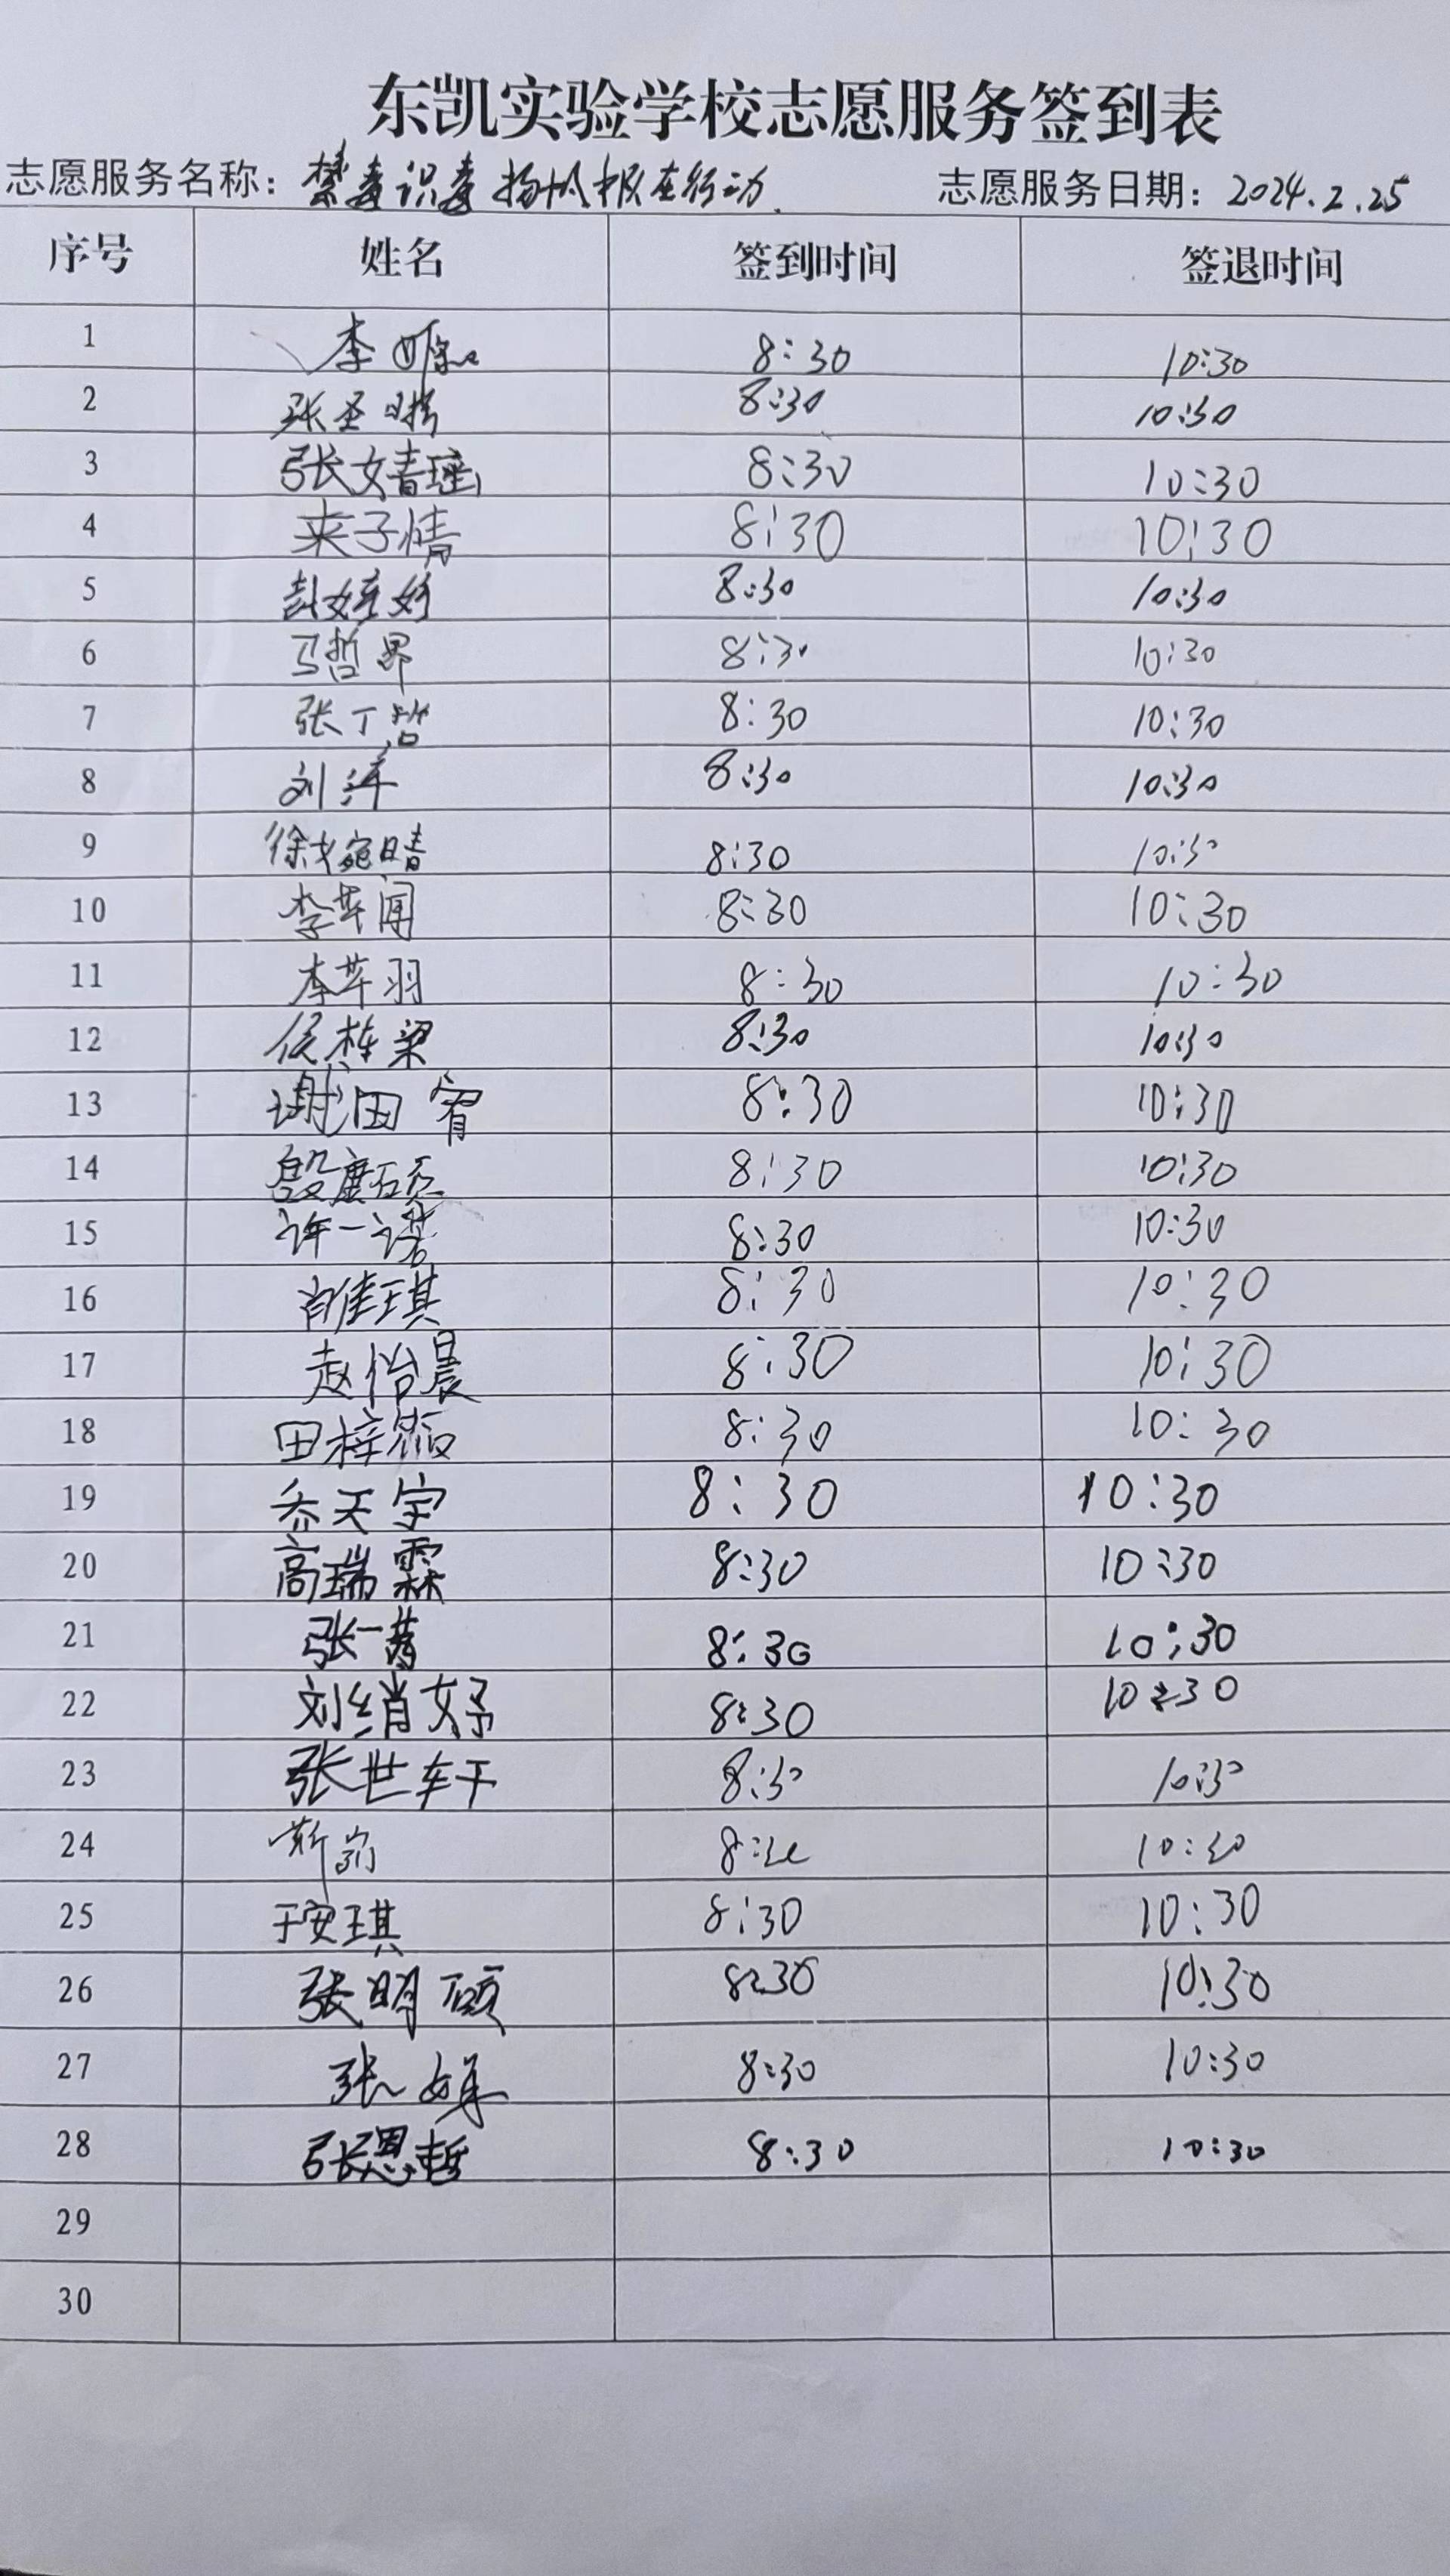 东凯实验学校志愿服务签到表
志愿服务名称：禁毒识毒 扬帆中队在行动 志愿服务日期：2024.2.25
序号 姓名 签到时间 签退时间
1 李 8:30 10:30
2 张圣 8:30 10:30
3 张婧瑶 8:30 10:30
4 夹子情 8:30 10:30
5 彭婷婷 8:30 10:30
6 马哲昂 8:30 10:30
7 张丁皓 8:30 10:30
8 刘洋 8:30 10:30
9 徐婉晴 8:30 10:30
10 李苹闻 8:30 10:30
11 李苹羽 8:30 10:30
12 侯栋梁 8:30 10:30
13 谢田宥 8:30 10:30
14 殷硕 8:30 10:30
15 许一诺 8:30 10:30
16 肖佳琪 8:30 10:30
17 赵怡晨 8:30 10:30
18 田梓 8:30 10:30
19 乔天宇 8:30 10:30
20 高瑞霖 8:30 10:30
21 张一 8:30 10:30
22 刘绡妤 8:30 10:30
23 张世轩 8:30 10:30
24 8:30 10:30
25 于安琪 8:30 10:30
26 张明硕 8:30 10:30
27 张 8:30 10:30
28 张恩哲 8:30 10:30
29
30